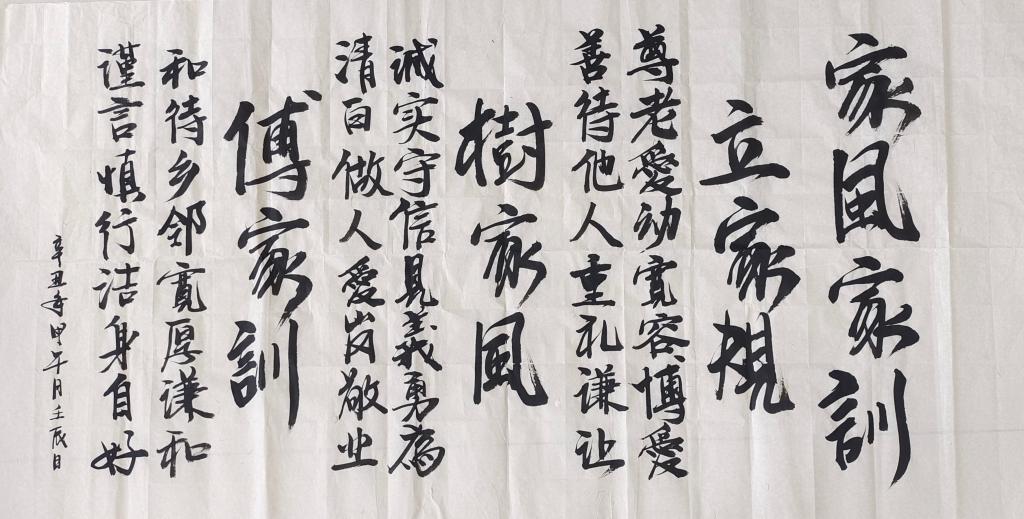 家风家训
立家規
尊老愛幼寛容博愛
善待他人重礼谦让
樹家風
诚实守信見義勇為
清白做人愛岗敬业
傅家訓
和待乡邻寛厚谦和
谨言慎行洁身自好
辛丑年甲午月壬辰日